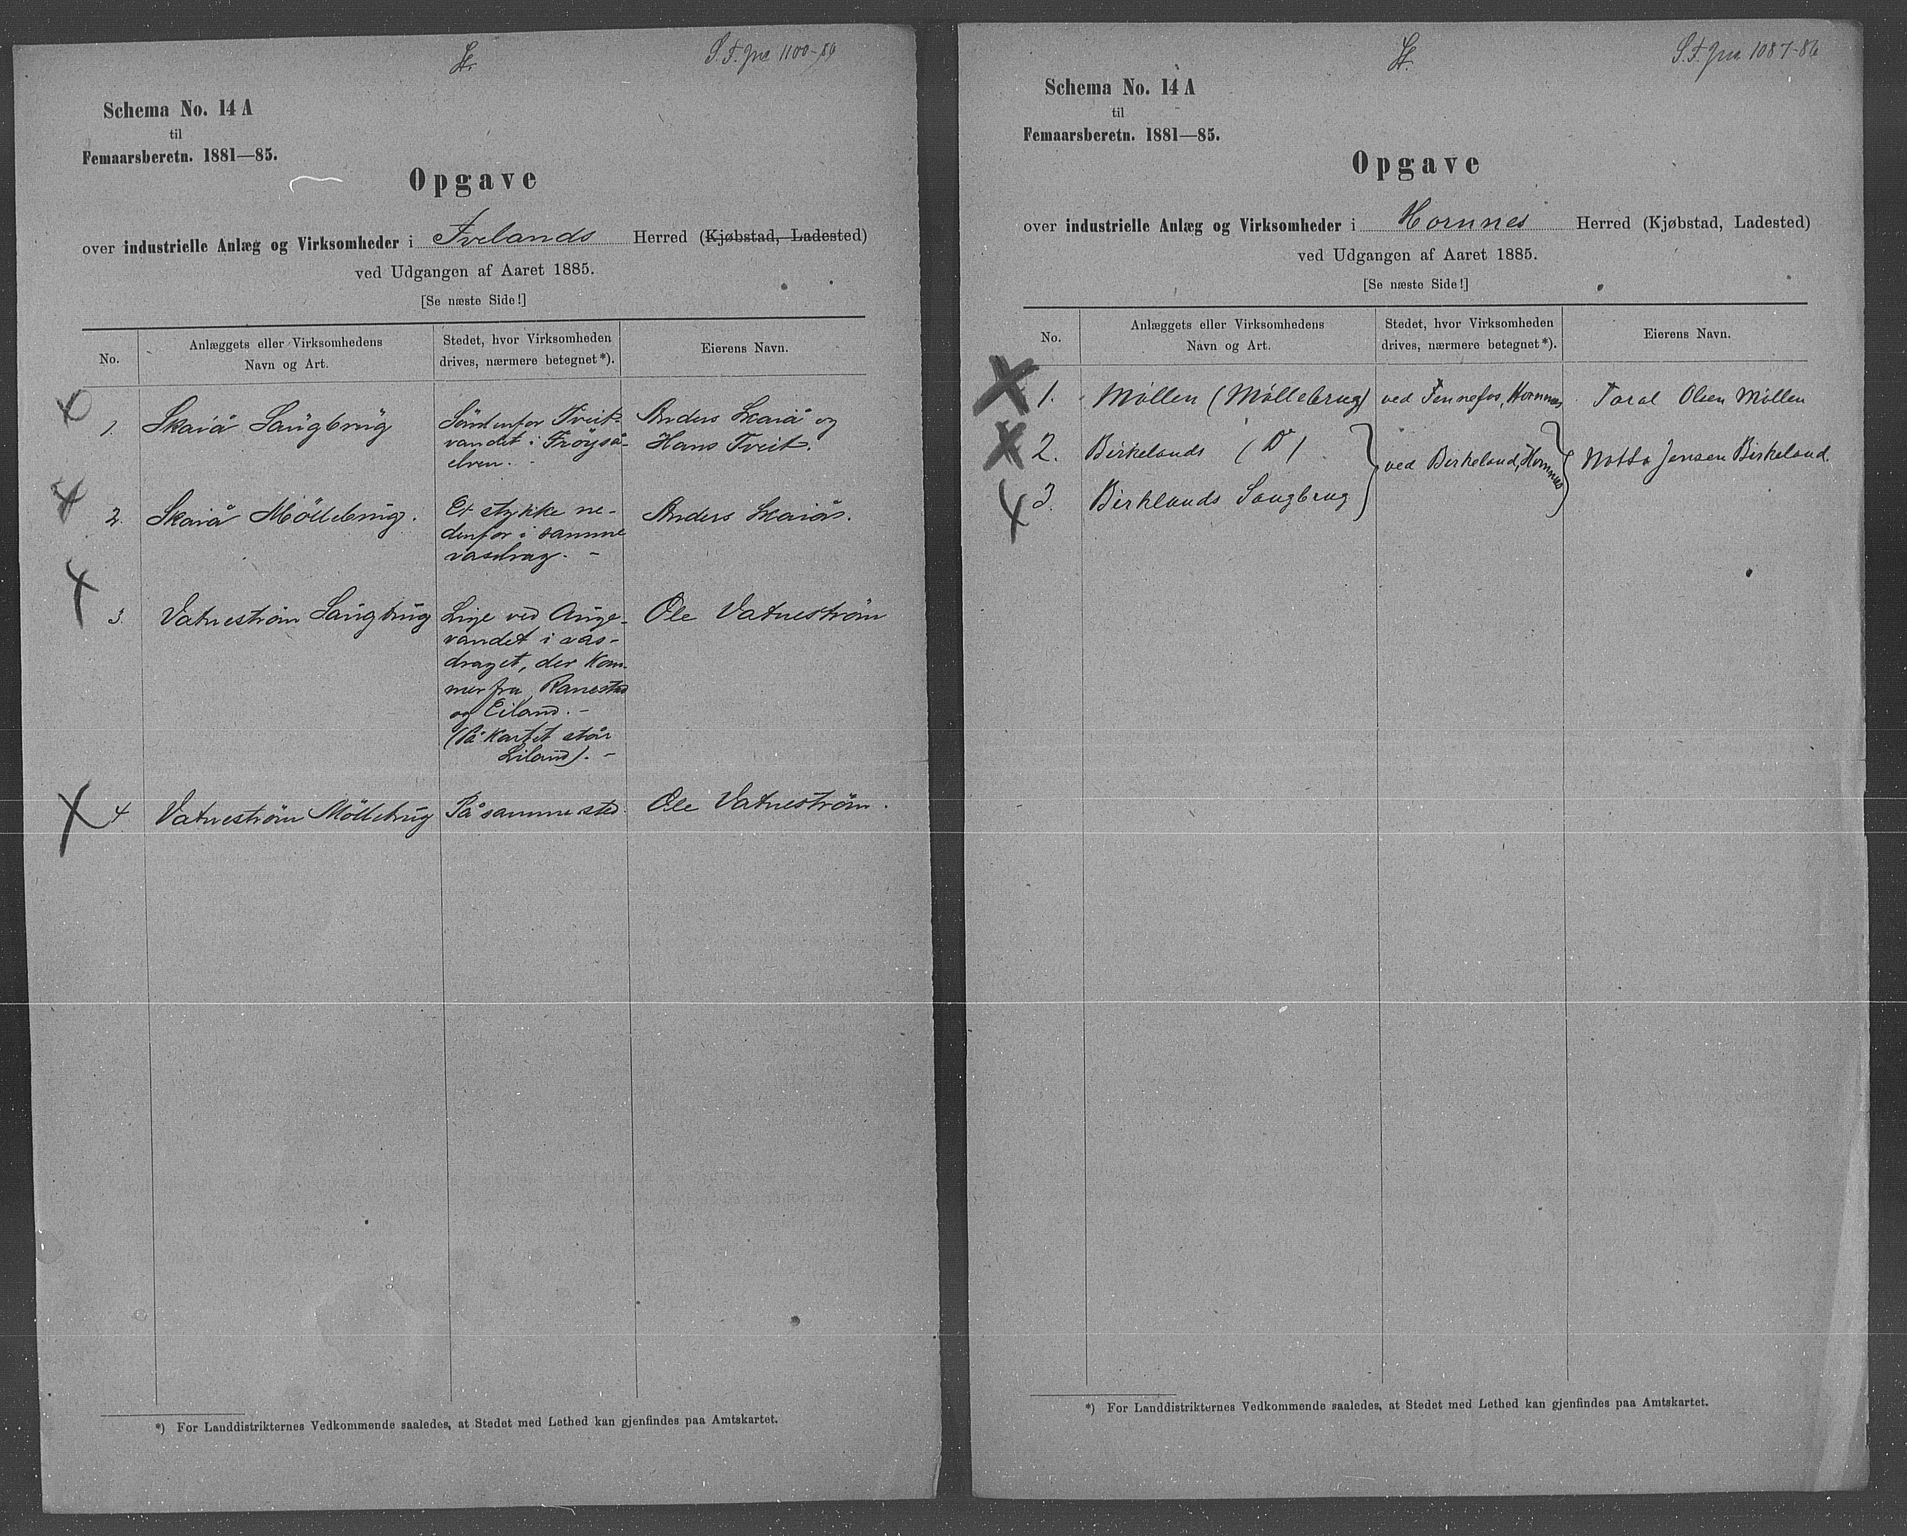 St.
S. F. jnr 1100-86
Schema No. 14 A
til
Femaarsberetn. 1881—85.
Opgave
over industrielle Anlæg og Virksomheder i Ivelands Herred (Kjøbstad, Ladested)
ved Udgangen af Aaret 1885.
[Se næste Side!]
No.
Anlæggets eller Virksomhedens
Navn og Art.
Stedet, hvor Virksomheden
drives, nærmere betegnet*).
Eierens Navn.
1. Skaiå Saugbrug
Söndenfor Tveit-
vandet i Fröyså-
elven.
Anders Skaiå og
Hans Tveit.
2. Skaiå Möllebrug.
Et stykke ne-
denfor i samme
vasdrag. -
Anders Skaiå.
3. Vatneström Saugbrug
Lige ved Auge-
vandet i vas-
draget, der kom-
mer fra Ranestad
og Eiland. -
(På kartet står
Liland). -
Ole Vatneström
4 Vatneström Möllebrug
På samme sted.
Ole Vatneström.
*) For Landdistrikternes Vedkommende saaledes, at Stedet med Lethed kan gjenfindes paa Amtskartet.
St.
S. F. jnr 1087-86
Schema No. 14 A
til
Femaarsberetn. 1881—85.
Opgave
over industrielle Anlæg og Virksomheder i Hornnes Herred (Kjøbstad, Ladested)
ved Udgangen af Aaret 1885.
[Se næste Side!]
No.
Anlæggets eller Virksomhedens
Navn og Art.
Stedet, hvor Virksomheden
drives, nærmere betegnet*).
Eierens Navn.
1. Møllen (Møllebrug) ved Fennefos, Hornnes Taral Olsen Møllen
2. Birkelands (Do) ved Birkeland, Hornnes Notto Jensen Birkeland.
3. Birklands Saugbrug
*) For Landdistrikternes Vedkommende saaledes, at Stedet med Lethed kan gjenfindes paa Amtskartet.